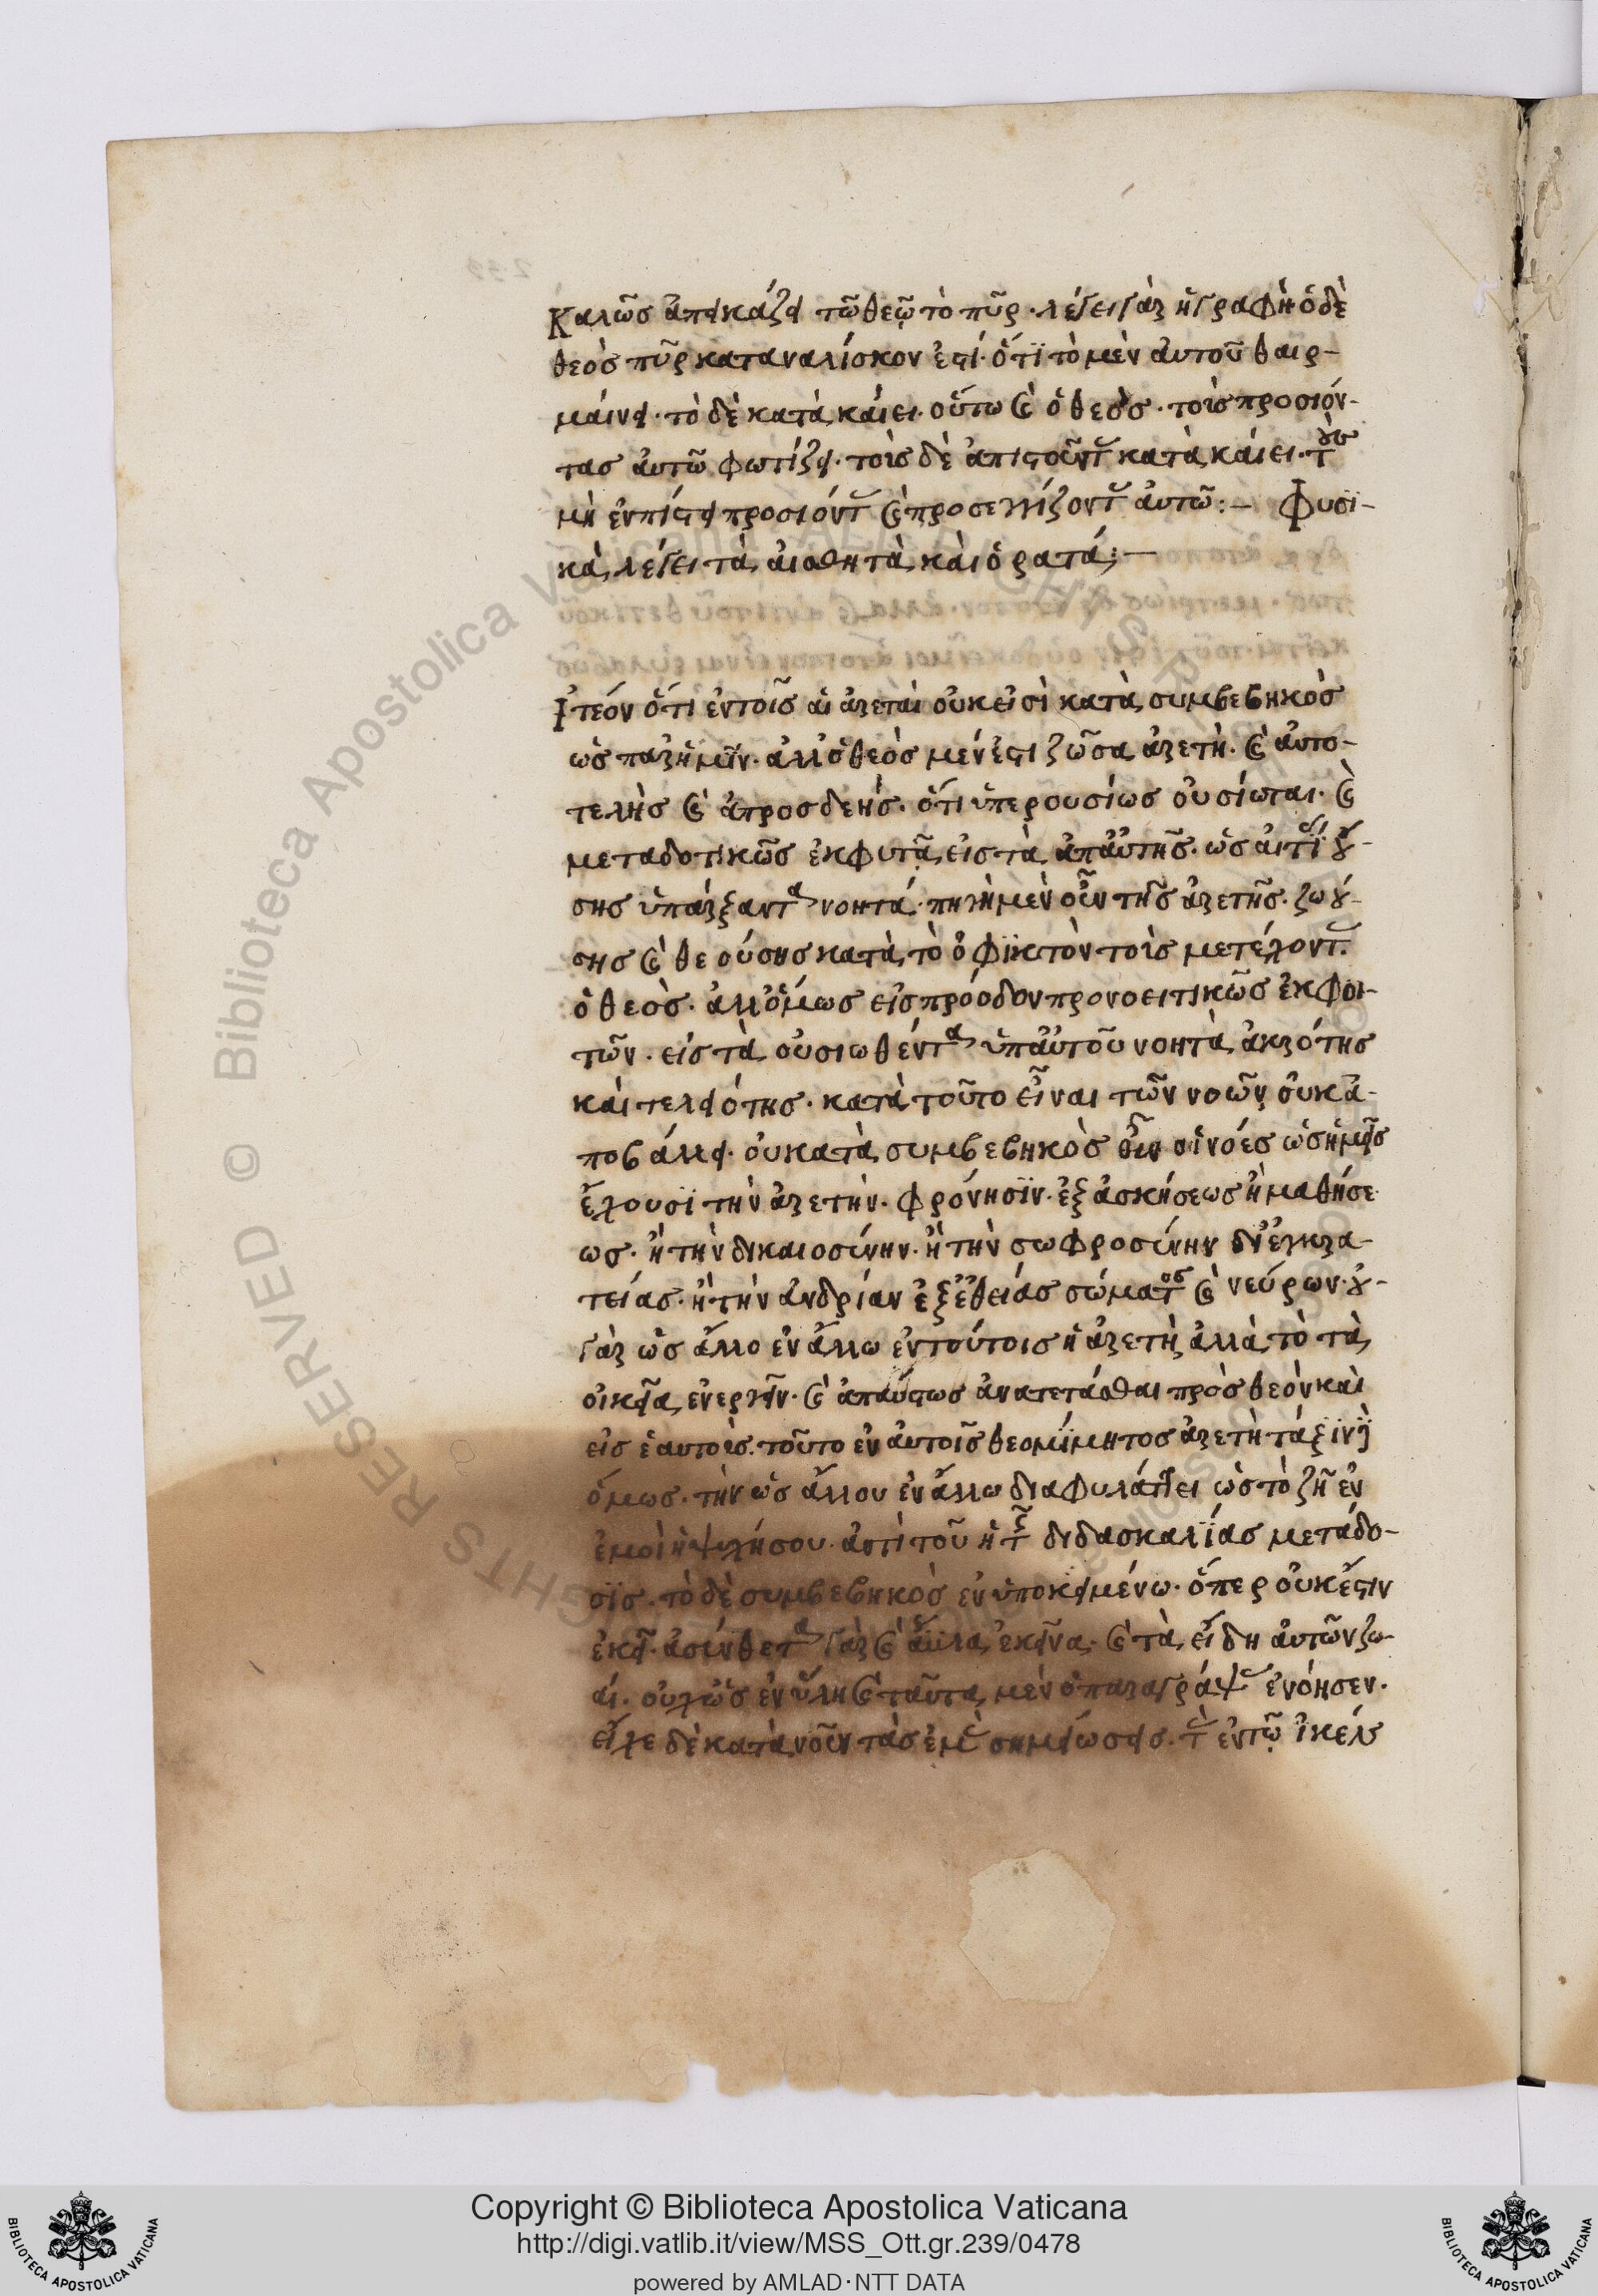 Καλῶσ ἀπεικάζει τῶ θεῷ τὸ πῦρ · λέγει γὰρ ἡ γραφὴ ὁ δὲ
θεὸσ πῦρ καταναλίσκον ἐστί · ὅτϊ τὸ μὲν αὐτοῦ θαιρ-
μαίνει · τὸ δὲ κατὰ καίει · οὕτω καὶ ὁ θεὸσ · τοὶσ προσιόν-
τασ αὐτῶ φωτίζει · τοὶσ δὲ ἀπιστοῦντ κατὰ καίει · τοὺσ
μὴ ἐν πίστει προσιόντ καὶ προσεγγίζοντ αὐτῶ :— Φυσϊ-
κὰ λέγει τὰ αἰσθητὰ καὶ ὁρατά :—
Ἰστέον ὅτι ἐν τοῖσ αἱ ἀρεταὶ οὐκ εἰσὶ κατὰ συμβεβηκὸσ
ὡσ παρ ἡμῖν · ἀλλ ὁ θεὸσ μέν ἐστι ζῶσα ἀρετὴ · καὶ αὐτο-
τελὴσ καὶ ἀπροσδεήσ · ὅτι ὑπερουσίωσ οὐσίωται · καὶ
μεταδοτικῶσ ἐκφυτᾶ εἰσ τὰ ἀπ αὐτῆσ · ὡσ αἰτίασ οὔ-
σησ ὑπάρξαντα νοητά · πηγὴ μὲν οὖν τῆσ ἀρετῆσ · ζωού-
σησ καὶ θεούσησ κατὰ τὸ ἐφϊκτὸν τοὶσ μετέχοντ ·
ὁ θεὸσ · ἀλλ ὅμωσ εἰσ πρόοδον προνοειτικῶσ ἐκφοι-
τῶν · εἰσ τὰ οὐσιωθέντα ὑπ αὐτοῦ νοητὰ ἀκρότησ
καὶ τελειότησ · κατὰ τοῦτο εἶναι τῶν νοῶν οὐκ ἀ-
ποβάλλει · οὐ κατὰ συμβεβηκὸσ οὖν οἱ νόεσ ὡσ ἡμεῖσ
ἔχουσϊ τὴν ἀρετὴν · φρόνησϊν · ἐξ ἀσκήσεωσ ἢ μαθήσε
ωσ · ἢ τὴν δικαιοσίνην · ἢ τὴν σωφροσίνην δι ἐγκρα-
τείασ · ἢ τὴν ἀνδρίαν ἐξ εὐθείασ σώματοσ καὶ νεύρων · οὐ-
γὰρ ὡσ ἄλλο ἐν ἄλλω ἐν τούτοισ ἡ ἀρετὴ ἀλλὰ τὸ τὰ
οἰκεῖα ἐνεργεῖν · καὶ ἀπαύστωσ ἀνατετάσθαι πρὸσ θεὸν καὶ
εἰσ ἑαυτοὶσ · τοῦτο ἐν αὐτοῖσ θεομίμητοσ ἀρετὴ τάξϊν
ὅμωσ · τὴν ὡσ ἄλλου ἐν ἄλλω διαφυλάττει ὡσ τὸ ζῆ ἐν
ἐμοὶ ἡ ψυχή σου · ἀντὶ τοῦ ἡ τῆσ διδασκαλΐασ μετάδο-
σϊσ · τὸ δὲ συμβεβηκὸσ ἐν ὑποκειμένω · ὅπερ οὐκ ἔστιν
ἐκεῖ · ἀσίνθετα γὰρ καὶ ἄϋλα ἐκεῖνα · καὶ τὰ εἴδη αὐτῶν ζω-
αί · οὐχ ὡσ ἐν ὕλη καὶ ταῦτα μὲν ὁ παραγράψ ἐνόησεν ·
εἶχε δὲ κατὰ νοῦν τὰσ ἐμ σημειώσεισ · τ ἐν τῷ ἰκέλ
Copyright © Biblioteca Apostolica Vaticana
http://digi.vatlib.it/view/MSS_Ott.gr.239/0478
powered by AMLAD·NTT DATA